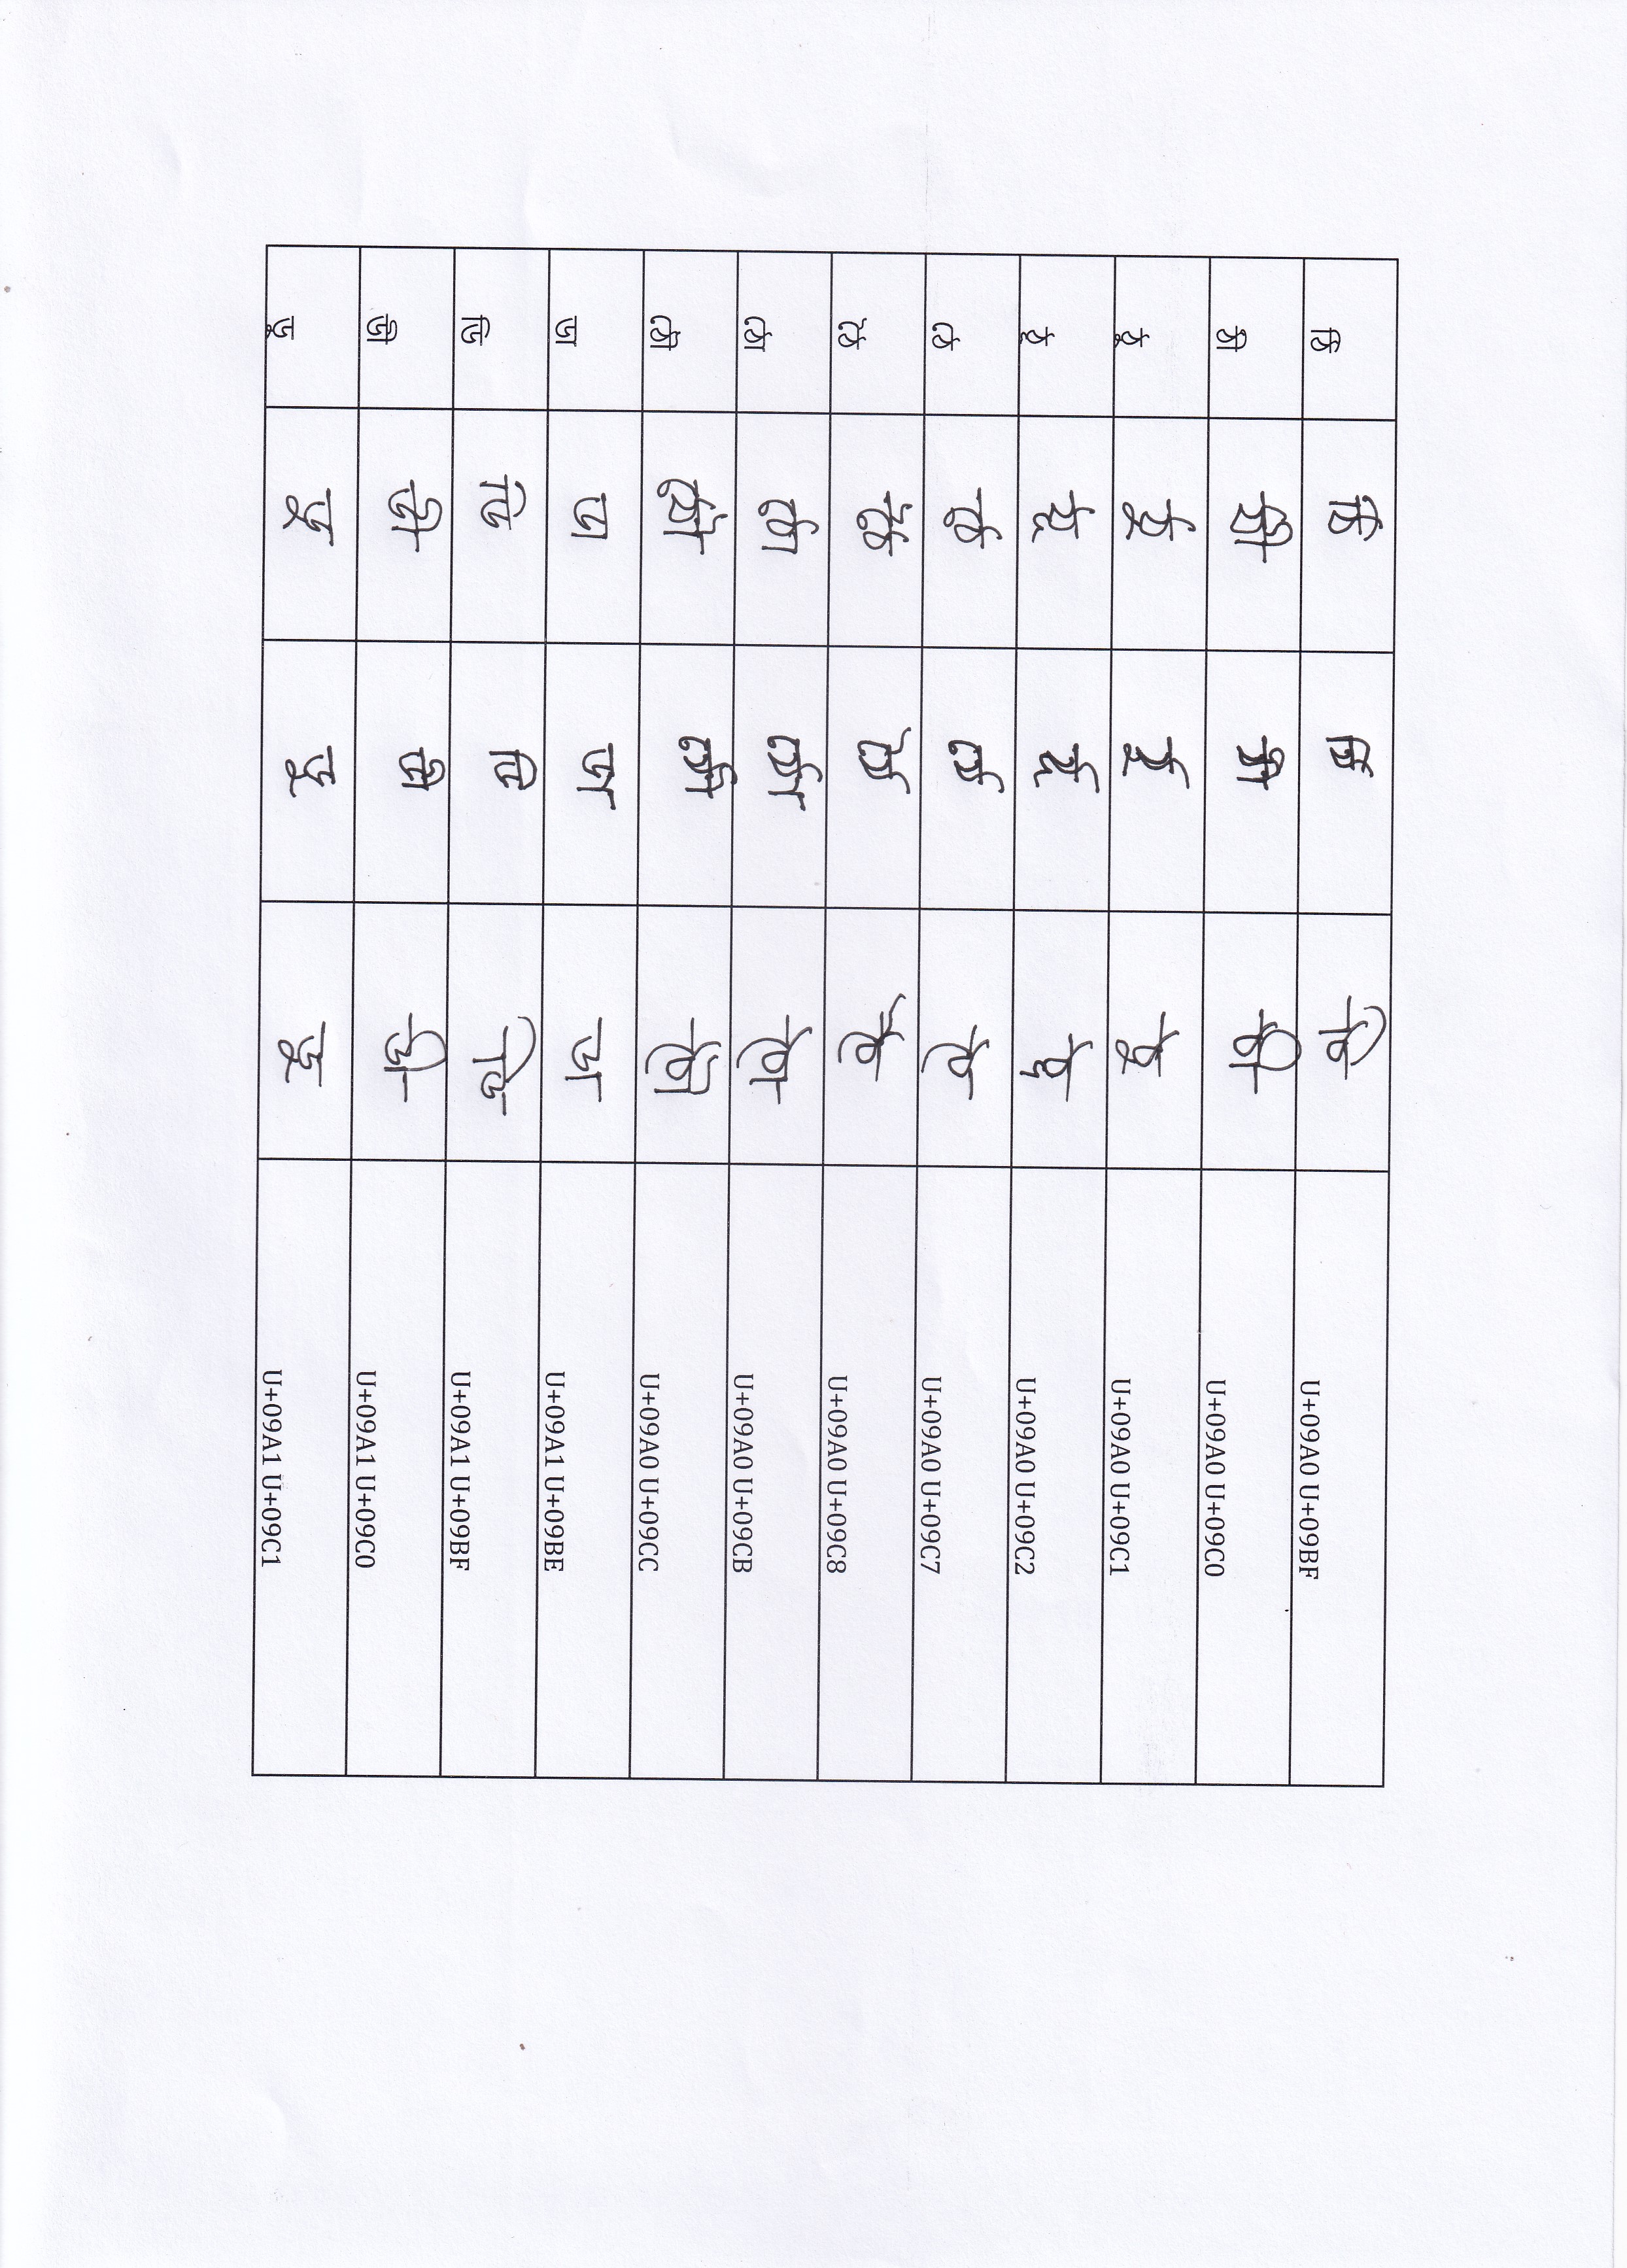 ঠি ঠি ঠি ঠি U+09A0 U+09BF
ঠী ঠী ঠী ঠী U+09A0 U+09C0
ঠু ঠু ঠু ঠু U+09A0 U+09C1
ঠূ ঠূ ঠূ ঠূ U+09A0 U+09C2
ঠে ঠে ঠে ঠে U+09A0 U+09C7
ঠৈ ঠৈ ঠৈ ঠৈ U+09A0 U+09C8
ঠো ঠো ঠো ঠো U+09A0 U+09CB
ঠৌ ঠৌ ঠৌ ঠৌ U+09A0 U+09CC
ডা ডা ডা ডা U+09A1 U+09BE
ডি ডি ডি ডি U+09A1 U+09BF
ডী ডী ডী ডী U+09A1 U+09C0
ডু ডু ডু ডু U+09A1 U+09C1